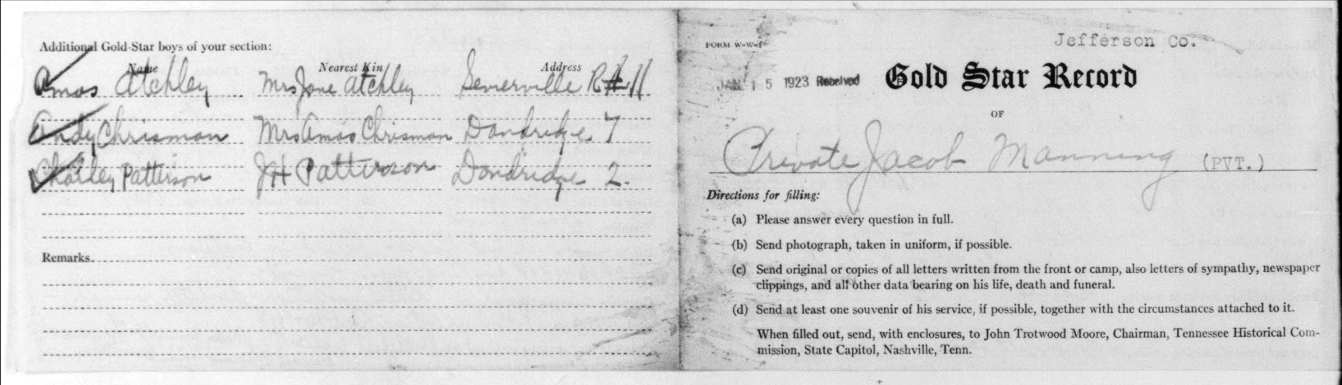 Additional Gold-Star boys of your section:
Name Nearest Kin Address
Amos Atchley Mrs Jane Atchley Sevierville R#11
Andy Chrisman Mrs Amos Chrisman Dandridge 7
Charley Patterson JH Patterson Dandridge 2.
Remarks
FORM W-W-1
Jefferson Co.
JAN 15 1923 Received
Gold Star Record
OF
Private Jacob Manning (PVT.)
Directions for filling:
(a) Please answer every question in full.
(b) Send photograph, taken in uniform, if possible.
(c) Send original or copies of all letters written from the front or camp, also letters of sympathy, newspaper
clippings, and all other data bearing on his life, death and funeral.
(d) Send at least one souvenir of his service, if possible, together with the circumstances attached to it.
When filled out, send, with enclosures, to John Trotwood Moore, Chairman, Tennessee Historical Com-
mission, State Capitol, Nashville, Tenn.